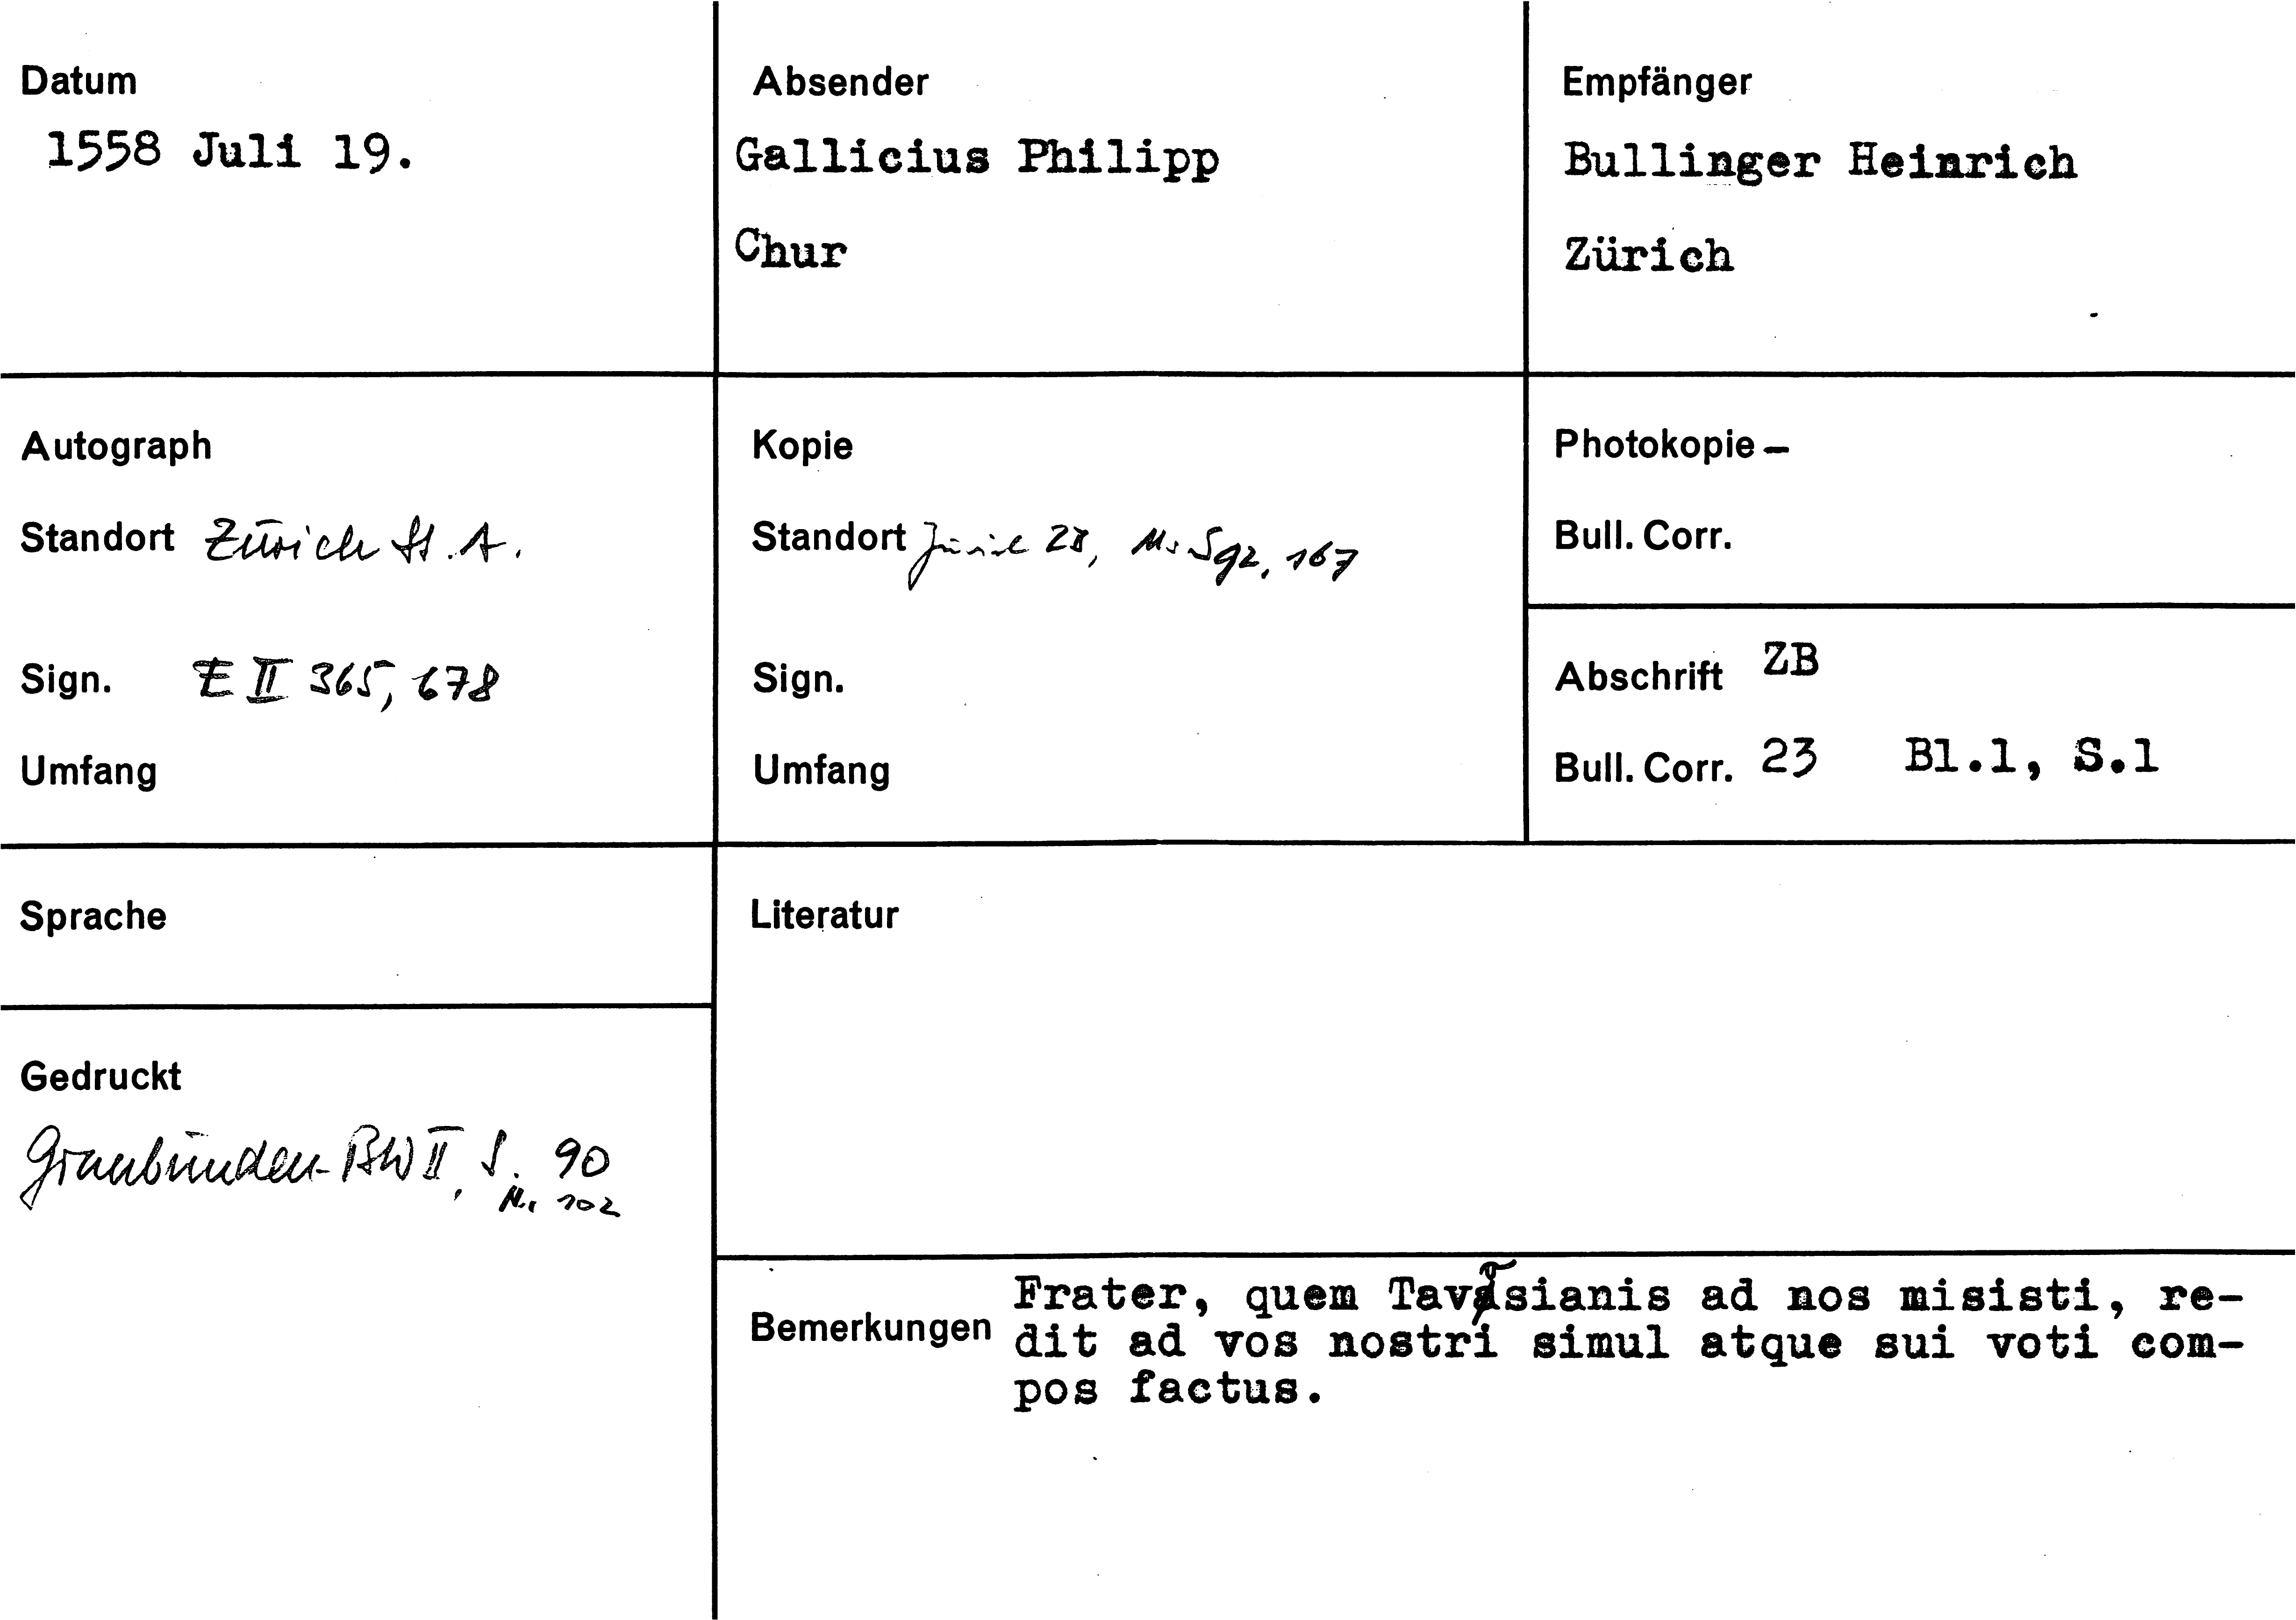 Datum
1558 Juli 19.
Absender
Gallicius Philipp
Chur
Empfänger
Bullinger Heinrich
Zürich
Autograph
Standort Zürich St.A.
Sign. E II 365, 678
Umfang
Kopie
Standort Zürich ZB, Ms S 92, 167
Sign.
Umfang
Photokopie –
Bull. Corr.
Abschrift ZB
Bull. Corr. 23 Bl.1, S.1
Sprache
Literatur
Gedruckt
Graubünden-BW II, S. 90
Nr. 102
Bemerkungen
Frater, quem Tavosianis ad nos misisti, re-
dit ad vos nostri simul atque sui voti com-
pos factus.